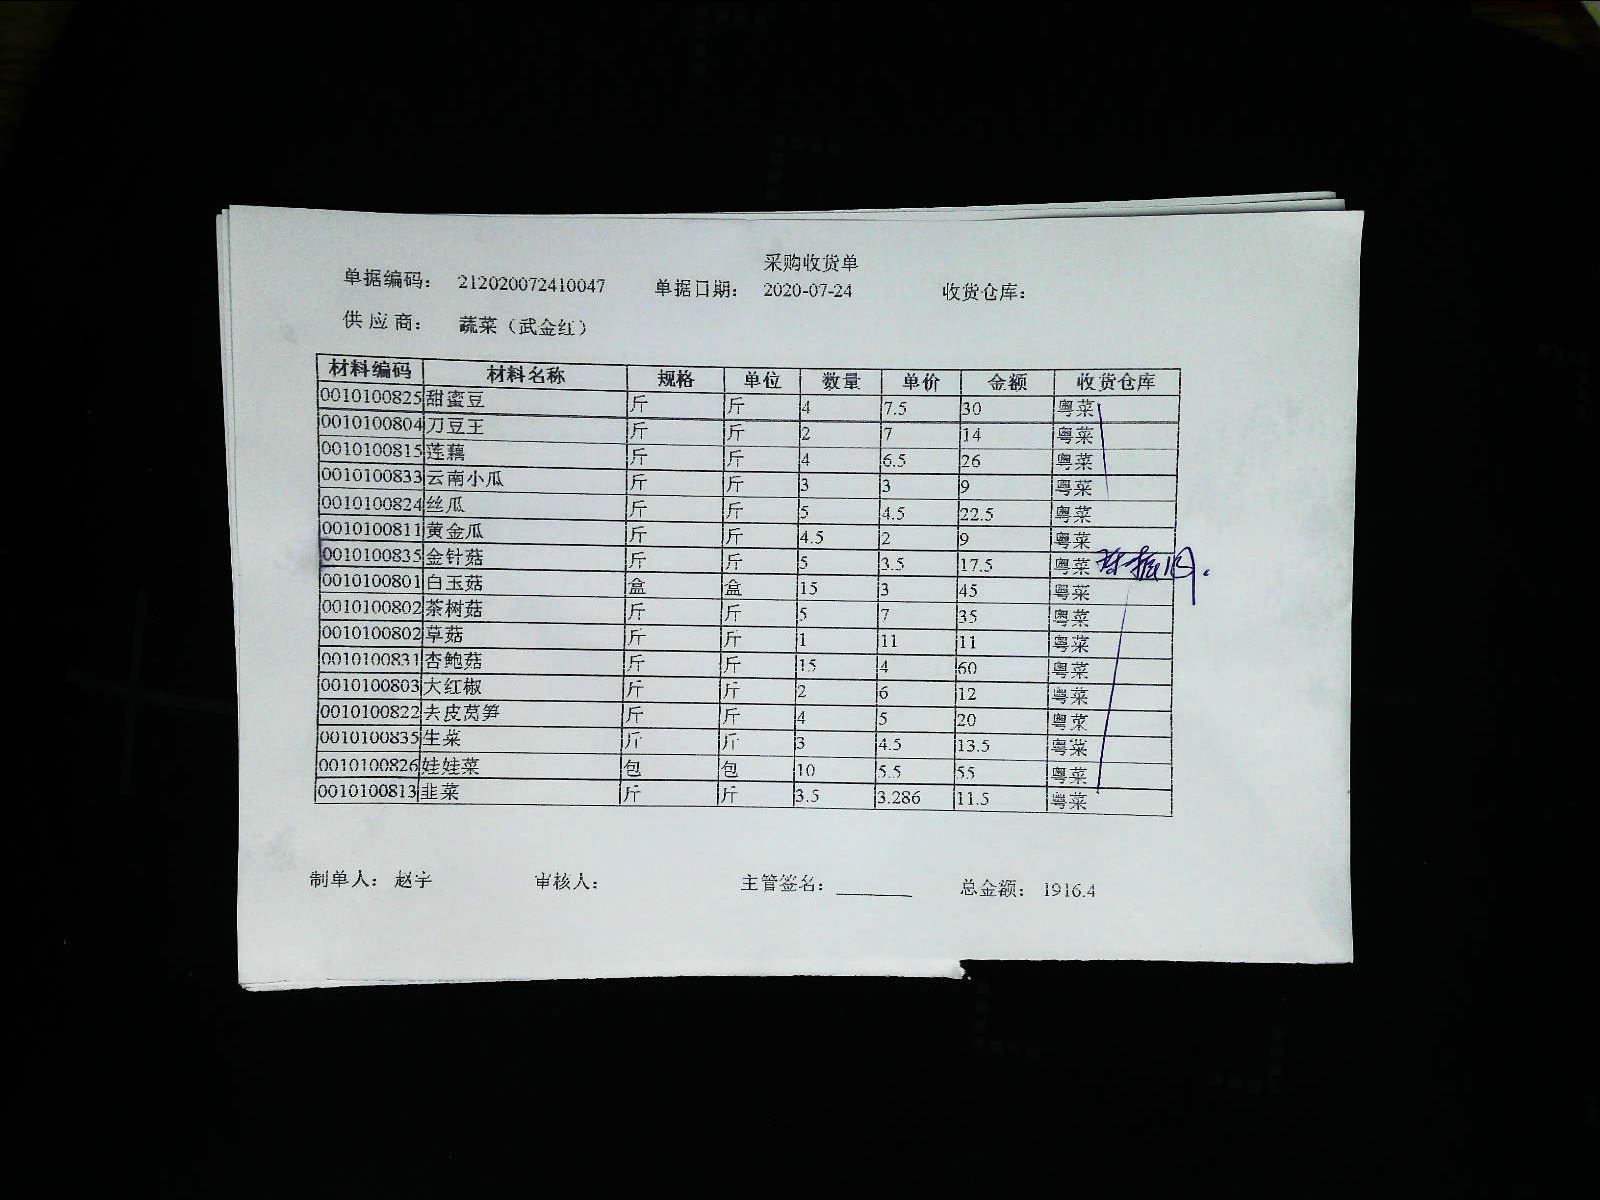 采购收货单
单据编码： 212020072410047 单据日期： 2020-07-24 收货仓库：
供应商： 蔬菜（武金红）
材料编码 材料名称 规格 单位 数量 单价 金额 收货仓库
0010100825 甜蜜豆 斤 斤 4 7.5 30 粤菜
0010100804 刀豆王 斤 斤 2 7 14 粤菜
0010100815 莲藕 斤 斤 4 6.5 26 粤菜
0010100833 云南小瓜 斤 斤 3 3 9 粤菜
0010100824 丝瓜 斤 斤 5 4.5 22.5 粤菜
0010100811 黄金瓜 斤 斤 4.5 2 9 粤菜
0010100835 金针菇 斤 斤 5 3.5 17.5 粤菜
0010100801 白玉菇 盒 盒 15 3 45 粤菜
0010100802 茶树菇 斤 斤 5 7 35 粤菜
0010100802 草菇 斤 斤 1 11 11 粤菜
0010100831 杏鲍菇 斤 斤 15 4 60 粤菜
0010100803 大红椒 斤 斤 2 6 12 粤菜
0010100822 去皮莴笋 斤 斤 4 5 20 粤菜
0010100835 生菜 斤 斤 3 4.5 13.5 粤菜
0010100826 娃娃菜 包 包 10 5.5 55 粤菜
0010100813 韭菜 斤 斤 3.5 3.286 11.5 粤菜
制单人： 赵宇 审核人： 主管签名： 总金额： 1916.4